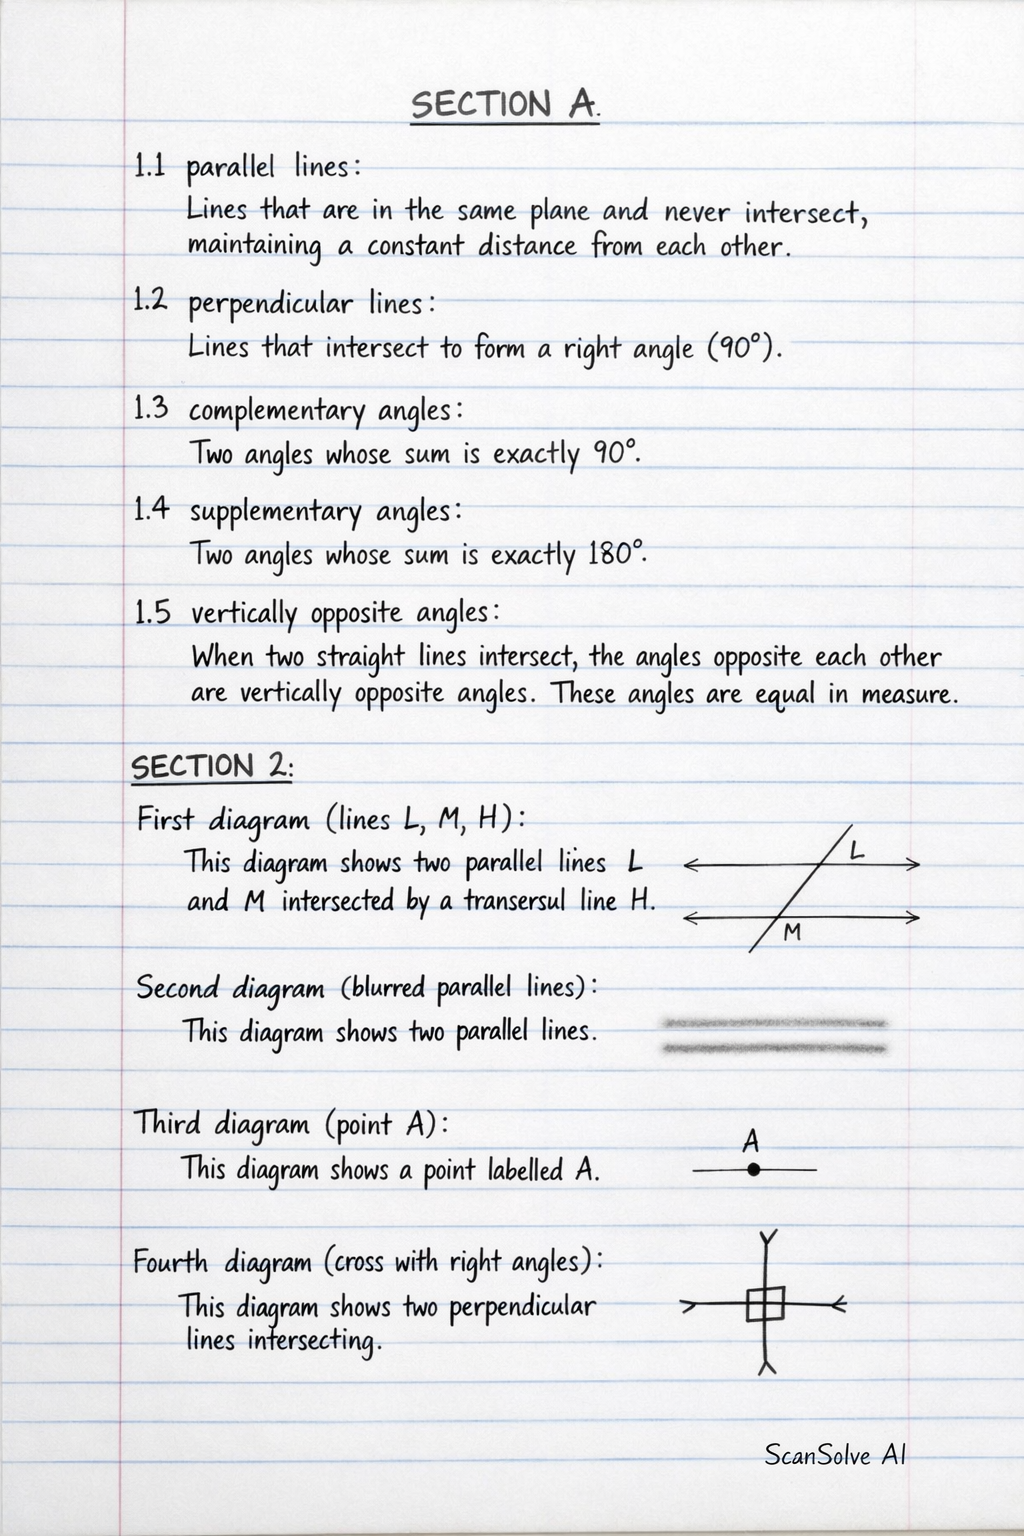 SECTION A.
1.1 parallel lines:
Lines that are in the same plane and never intersect,
maintaining a constant distance from each other.
1.2 perpendicular lines:
Lines that intersect to form a right angle (90°).
1.3 complementary angles:
Two angles whose sum is exactly 90°.
1.4 supplementary angles:
Two angles whose sum is exactly 180°.
1.5 vertically opposite angles:
When two straight lines intersect, the angles opposite each other
are vertically opposite angles. These angles are equal in measure.
SECTION 2:
First diagram (lines L, M, H):
This diagram shows two parallel lines L
and M intersected by a transersul line H.
L
M
Second diagram (blurred parallel lines):
This diagram shows two parallel lines.
Third diagram (point A):
This diagram shows a point labelled A.
A
Fourth diagram (cross with right angles):
This diagram shows two perpendicular
lines intersecting.
ScanSolve AI